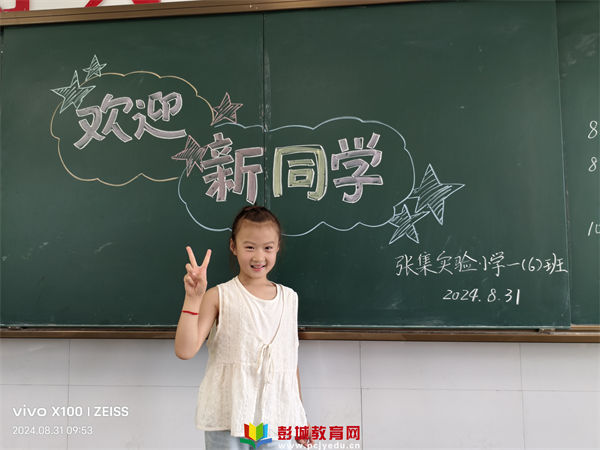 欢迎
新同学
张集实验小学一(6)班
2024.8.31
8
8
10
vivo X100 | ZEISS
2024.08.31 09:53
彭城教育网
www.pcjyedu.cn